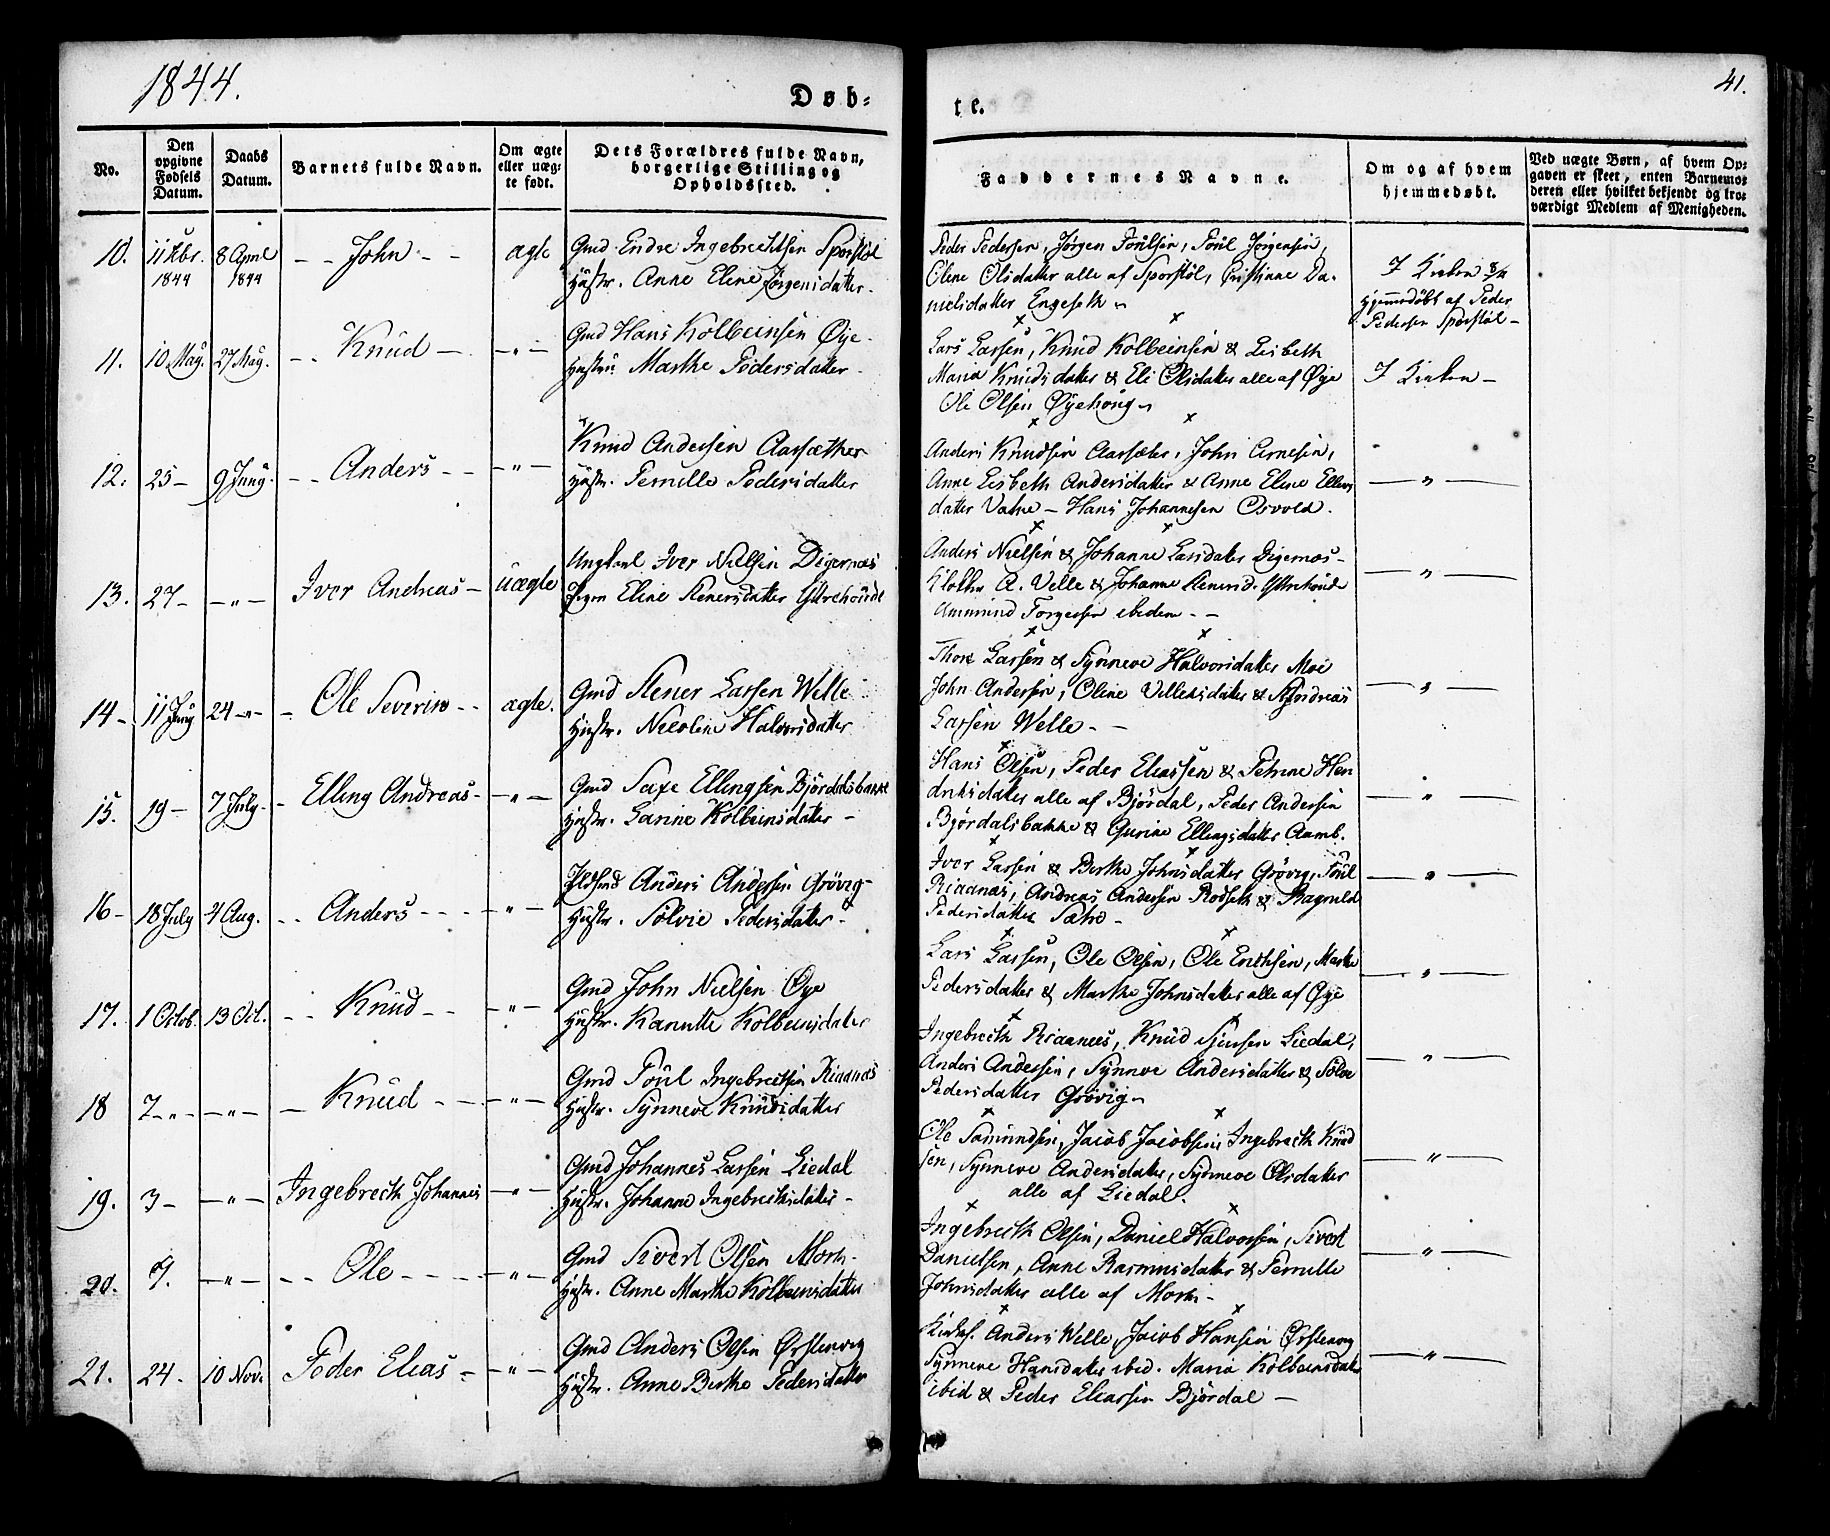 1844.
Døb-
te.
41.
No.
Den opgivne Fødsels Datum.
Daabs Datum.
Barnets fulde Navn.
Om ægte eller uægte født.
Dets Forældres fulde Navn, borgerlige Stilling og Opholdsted.
Faddernes Navne.
Om og af hvem hjemmedøbt.
Ved uægte Børn, af hvem Opgaven er skeet, enten Barnemoderen eller hvilket bekjendt og troværdigt Medlem af Menigheden.
10. 11 Xbr. 1844 8 April 1844 John ægte
Gmd Endre Ingebrechtsen Sporstøl
Hustr. Anne Eline Jørgensdatter
Peder Pedersen, Jørgen Poulsen, Poul Jørgensen,
Oline Olsdatter alle af Sporstøl, Cristiane Da-
nielsdatter Engeseth
I Kirken 8/4
Hjemmedøbt af Peder
Pedersen Sporstøl
11. 10 May. 27 May. Knud - " -
Gmd Hans Kolbeinsen Øye
Hustru Marthe Pedersdatter
Lars Larsen, Knud Kolbeinsen & Lisbeth
Maria Knudsdatter & Eli Olsdatter alle af Øye
Ole Olsen Øyehoug
I Kirken
12. 25 - 9 Juny. Anders - " -
Knud Andersen Aarsæther
Hustr. Pernille Pedersdatter
Anders Knudsen Aarsæter, John Arnesen,
Anne Lisbeth Andersdatter & Anne Eline Ellens
datter Vatne - Hans Johannesen Osvold.
- " -
13. 27 - - " - Iver Andreas uægte
Ungkarl Iver Nielsen Digernæs
Pigen Eline Stenersdatter Yttrehoude
Anders Nielsen & Johanne Larsdatter Digernæs
Klokker A. Velle & Johanne Stenersd. Yttrehoude
Ammund Torgersen ibidem
- " -
14 - 11 Juny 24 - " - Ole Severin ægte.
Gmd Stener Larsen Welle
Hustr. Nicoline Halvorsdatter
Thore Larsen & Synneve Halvorsdatter Moe
John Andersen, Oline Vellensdatter & Andreas
Larsen Welle
- " -
15. 19 - 7 July Elling Andreas - " -
Gmd Saxe Ellingsen Bjørdalsbakke
Hustr. Larine Kolbeinsdatter
Hans Olsen, Peder Eliassen & Petrine Hen
driksdatter alle af Bjørdal, Peder Andersen
Bjørdalsbakke & Gurine Ellingsdatter Aamb.
- " -
16 - 18 July 4 Aug. Anders - " -
Anders Andersen Grøvig
Hustr. Sølvie Pedersdatter
Iver Larsen & Berthe Johnsdatter Grøvig, Poul
Riaanæs, Andreas Andersen Rodseth & Ragnild
Pedersdatter Sætre
- " -
17. 1 Octob. 13 Oct. Knud - " -
Gmd John Nielsen Øye
Hustr. Kanutte Kolbeinsdatter
Lars Larsen, Ole Olsen, Ole Endresen, Marthe
Pedersdatter & Marthe Johnsdatter alle af Øye
- " -
18 7 - " - - " - Knud - " -
Gmd Poul Ingebrechtsen Riaanæs
Hustr. Synneve Knudsdatter
Ingebrecth Riaanæs, Knud Liedal,
Anders Andersen, Synneve Andersdatter & Sølve
Pedersdatter Grøvig
- " -
19. 3 - - " - Ingebrecth Johannes - " -
Gmd Johannes Larsen Liedal
Hustr. Johanne Ingebrecthsdatter
Ole Samundsen, Jacob Jacobsen, Ingebrecth Knud
sen, Synneve Andersdatter, Synneve Olsdatter
alle af Liedal.
- " -
20. 9. - " - Ole - " -
Gmd Sivert Olsen Mork
Hustr. Anne Marthe Kolbeinsdatter
Ingebrecth Olsen, Daniel Halvorsen, Sivert
Danielsen, Anne Rasmusdatter & Pernille
Johnsdatter alle af Mork
- " -
21. 24. 10 Nov. Peder Elias - " -
Gmd Anders Olsen Ørstenvig
Hustr. Anne Berthe Pedersdatter
Kirkes. Anders Welle, Jacob Hansen Ørstenvig
Synneve Hansdatter ibid. Maria Kolbeinsdatter
ibid & Peder Eliassen Bjørdal
- " -